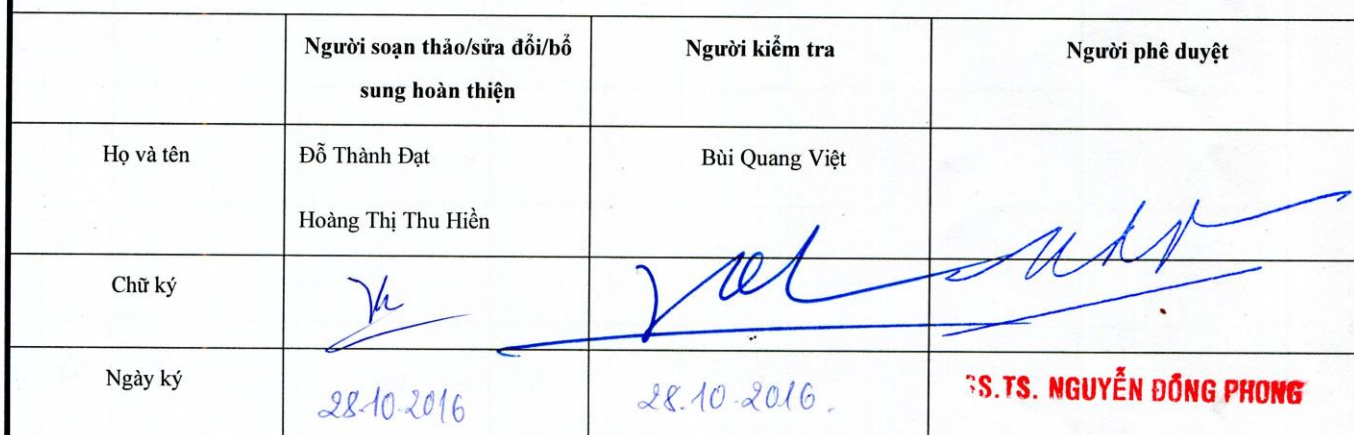 Người soạn thảo/sửa đổi/bổ
sung hoàn thiện
Người kiểm tra
Người phê duyệt
Họ và tên
Đỗ Thành Đạt
Hoàng Thị Thu Hiền
Bùi Quang Việt
Chữ ký
Ngày ký
28.10.2016
28.10.2016.
GS.TS. NGUYỄN ĐÔNG PHONG